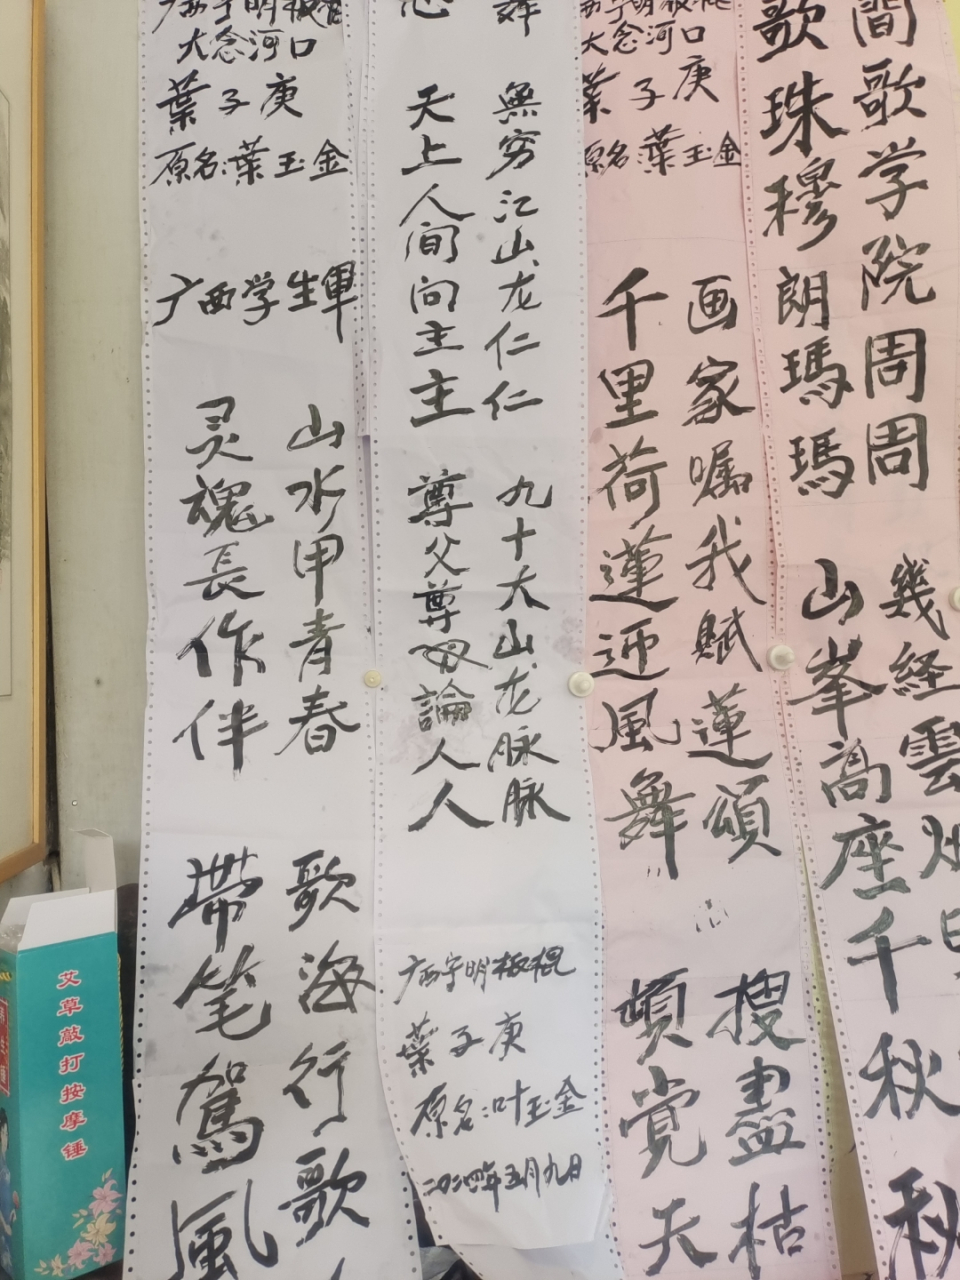 間歌学院周周
歌珠穆朗瑪瑪
幾経雲
山峯高座千秋秋
大念河口
葉子庚
原名:葉玉金
画家嘱我賦蓮頌
千里荷蓮迎風舞
搜盡枯
頓觉天
舞
無穷江山龙仁仁
天上人间问主主
九十大山龙脉脉
尊父尊母論人人
广西宁明板棍
葉子庚
原名:叶玉金
二〇二四年五月九日
大念河口
葉子庚
原名:葉玉金
广西学生軍
山水甲青春
灵魂長作伴
歌海行歌
带笔駕風
艾草敲打按摩锤